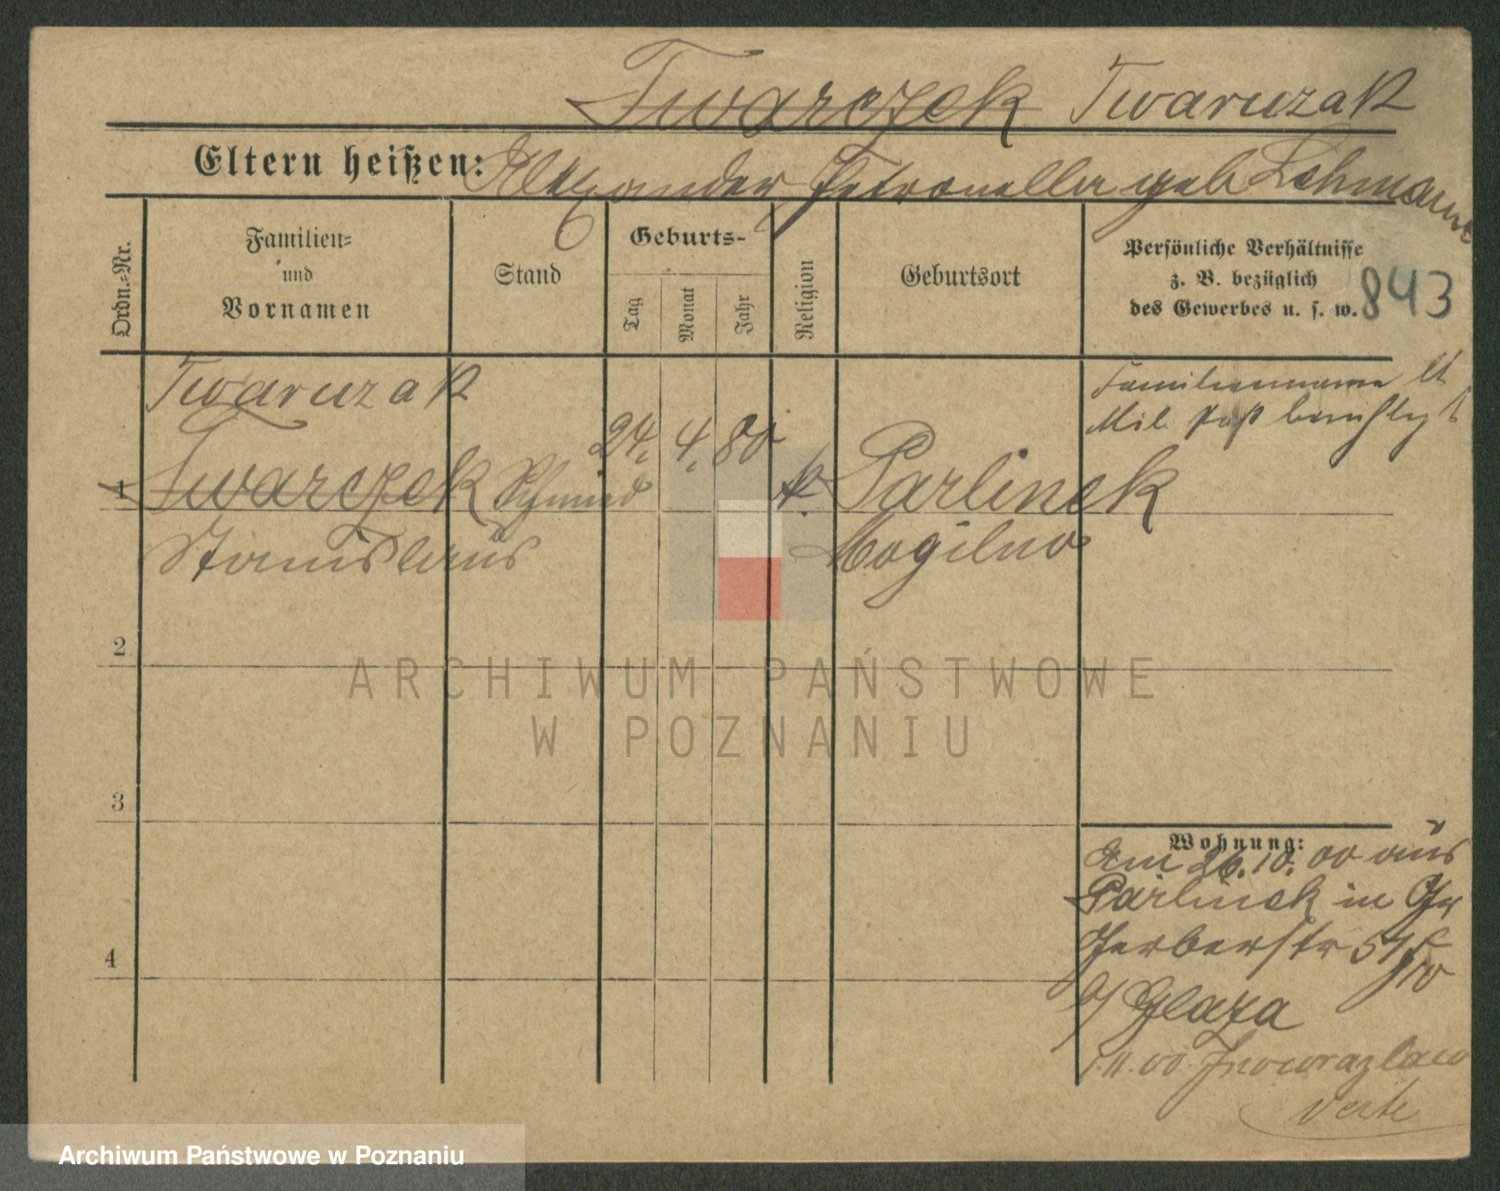 Twarczek Twaruzak
Eltern heißen: Alexander Petronella geb Lehmann
Ordn.-Nr.
Familien-
und
Vornamen
Stand
Geburts-
Tag
Monat
Jahr
Religion
Geburtsort
Persönliche Verhältnisse
z. B. bezüglich
des Gewerbes u. s. w.
843
Twaruzak
Familienname lt
Mil. Paß
24. 4. 80
1 Twarczek Schmied k. Parlinek
Stanislaus Mogilno
2
ARCHIWUM PAŃSTWOWE
W POZNANIU
3
Wohnung:
Am 26.10.00 aus
Parlinek in
Gerberstr 57
b/ Glaza
1.11.00. Inowrazlaw
4
Archiwum Państwowe w Poznaniu